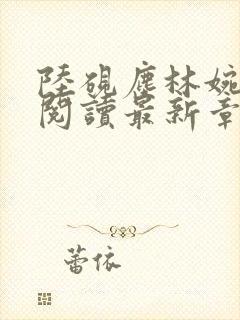 陸硯塵林婉
閱讀最新章
蕾依